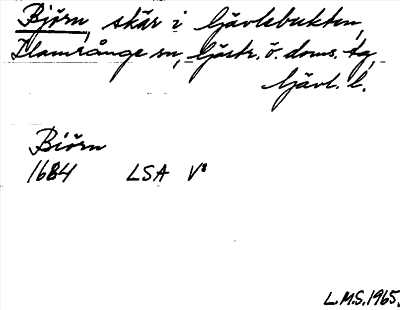 Björn, skär i Gävlebukten,
Hamrånge sn, Gästr. ö. doms. tg,
Gävl. l.
Biörn
1684 LSA V⁸
L.M.S. 1965.